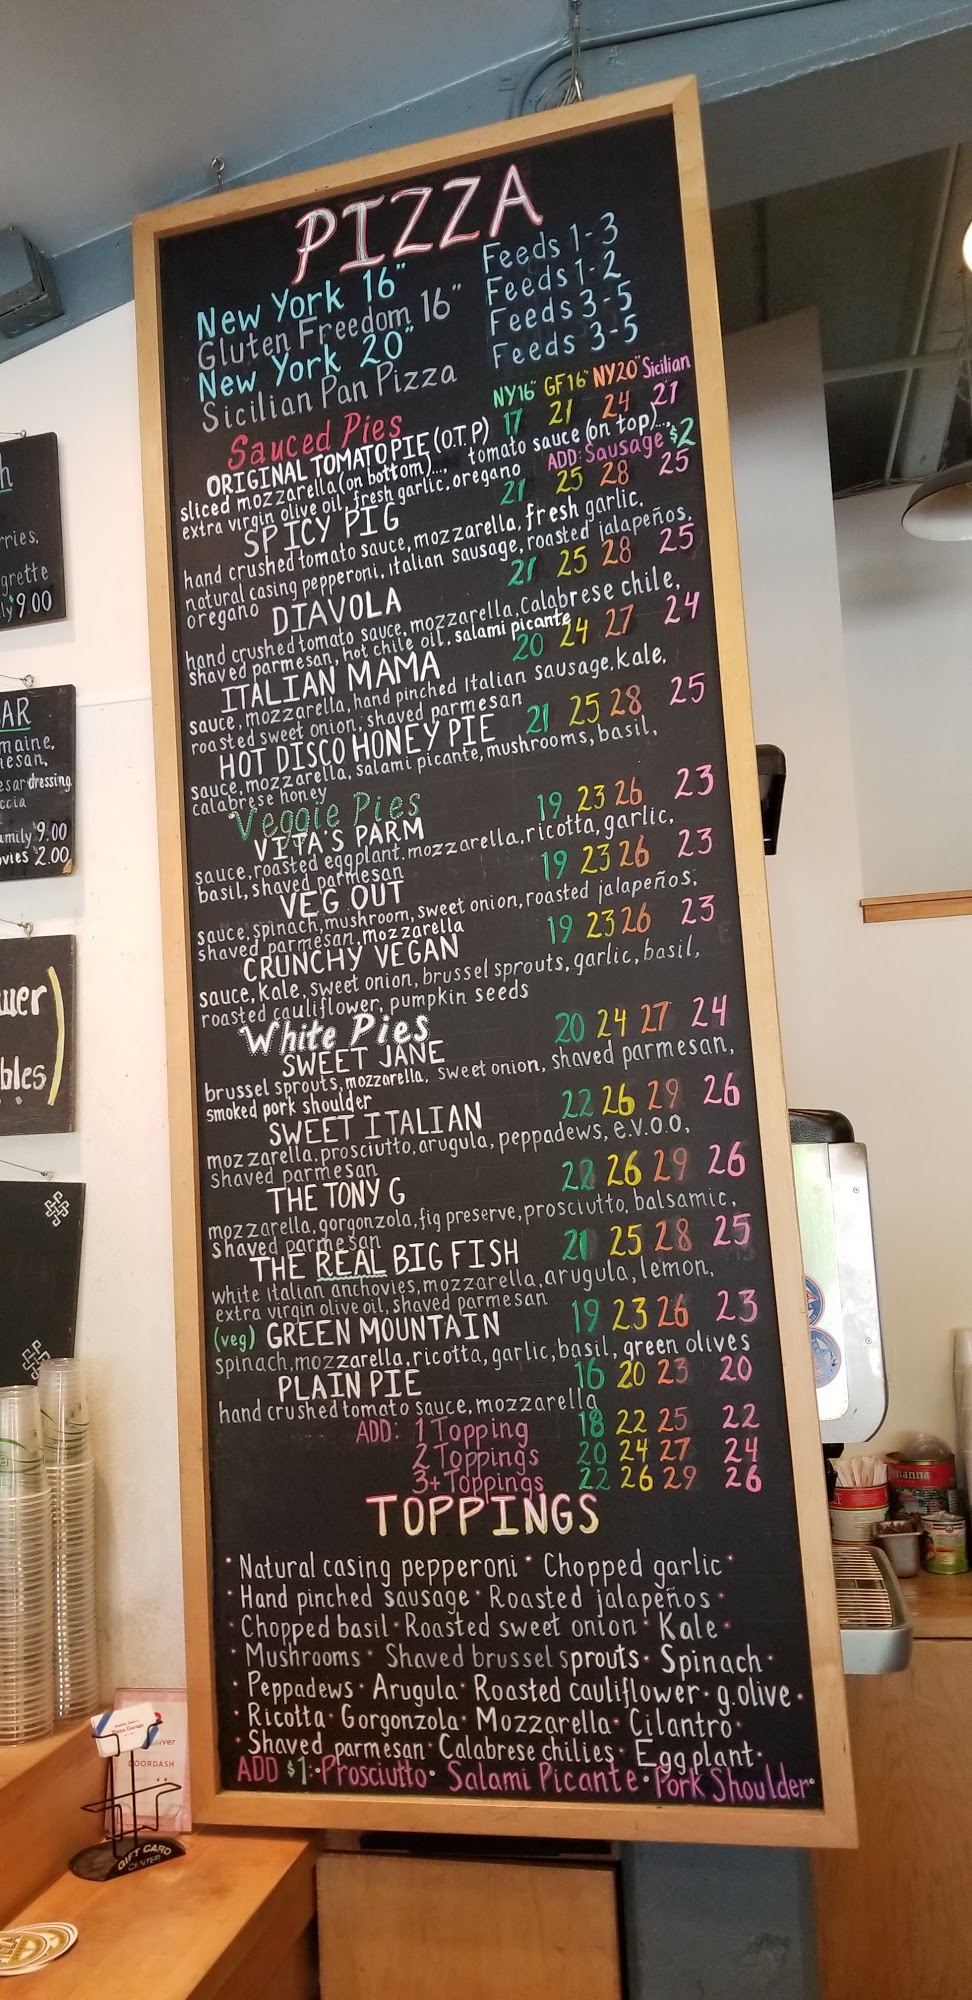 PIZZA
New York 16" Feeds 1-3
Gluten Freedom 16" Feeds 1-2
New York 20" Feeds 3-5
Sicilian Pan Pizza Feeds 3-5
NY16" GF16" NY20" Sicilian
Sauced Pies 17 21 24 27
ORIGINAL TOMATO PIE (O.T.P)
sliced mozzarella (on bottom).... tomato sauce (on top)...,
extra virgin olive oil, fresh garlic, oregano ADD: Sausage $2
SPICY PIG 21 25 28 25
hand crushed tomato sauce, mozzarella, fresh garlic,
natural casing pepperoni, italian sausage, roasted jalapeños,
oregano
DIAVOLA 21 25 28 25
hand crushed tomato sauce, mozzarella, Calabrese chile,
shaved parmesan, hot chile oil, salami picante
ITALIAN MAMA 20 24 27 24
sauce, mozzarella, hand pinched Italian sausage, kale,
roasted sweet onion, shaved parmesan
HOT DISCO HONEY PIE 21 25 28 25
sauce, mozzarella, salami picante, mushrooms, basil,
calabrese honey
Veggie Pies
VITA'S PARM 19 23 26 23
sauce, roasted eggplant, mozzarella, ricotta, garlic,
basil, shaved parmesan
VEG OUT 19 23 26 23
sauce, spinach, mushroom, sweet onion, roasted jalapeños,
shaved parmesan, mozzarella
CRUNCHY VEGAN 19 23 26 23
sauce, kale, sweet onion, brussel sprouts, garlic, basil,
roasted cauliflower, pumpkin seeds
White Pies
SWEET JANE 20 24 27 24
brussel sprouts, mozzarella, sweet onion, shaved parmesan,
smoked pork shoulder
SWEET ITALIAN 22 26 29 26
mozzarella, prosciutto, arugula, peppadews, e.v.o.o,
shaved parmesan
THE TONY G 22 26 29 26
mozzarella, gorgonzola, fig preserve, prosciutto, balsamic,
shaved parmesan
THE REAL BIG FISH 21 25 28 25
white italian anchovies, mozzarella, arugula, lemon,
extra virgin olive oil, shaved parmesan
(veg) GREEN MOUNTAIN 19 23 26 23
spinach, mozzarella, ricotta, garlic, basil, green olives
PLAIN PIE 16 20 23 20
hand crushed tomato sauce, mozzarella
ADD: 1 Topping 18 22 25 22
2 Toppings 20 24 27 24
3+ Toppings 22 26 29 26
TOPPINGS
• Natural casing pepperoni • Chopped garlic •
• Hand pinched sausage • Roasted jalapeños •
• Chopped basil • Roasted sweet onion • Kale •
• Mushrooms • Shaved brussel sprouts • Spinach •
• Peppadews • Arugula • Roasted cauliflower • g.olive •
• Ricotta • Gorgonzola • Mozzarella • Cilantro •
• Shaved parmesan • Calabrese chilies • Eggplant •
ADD $1: • Prosciutto • Salami Picante • Pork Shoulder •
9.00
AR
maine,
dressing
9.00
2.00
GIFT CARD
CENTER
DOORDASH